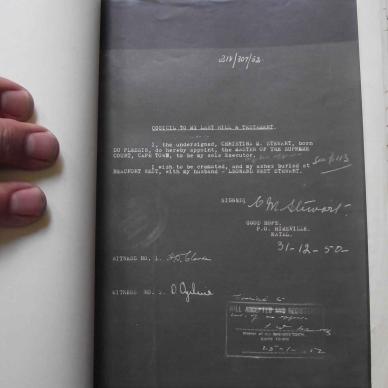 218/307/52
CODICIL TO MY LAST WILL & TESTAMENT.
I, the undersigned, CHRISTINA M. STEWART, born
DU PLESSIS, do hereby appoint, the MASTER OF THE SUPREME
COURT, CAPE TOWN, to be my sole Executor.
I wish to be cremated, and my ashes buried at
BEAUFORT WEST, with my husband - LEONARD WEST STEWART.
SIGNED C M Stewart.
GOOD HOPE,
P.O. HIMEVILLE,
NATAL.
31-12-50
WITNESS NO. 1.
WITNESS NO. 2. D.
WILL ACCEPTED AND REGISTERED